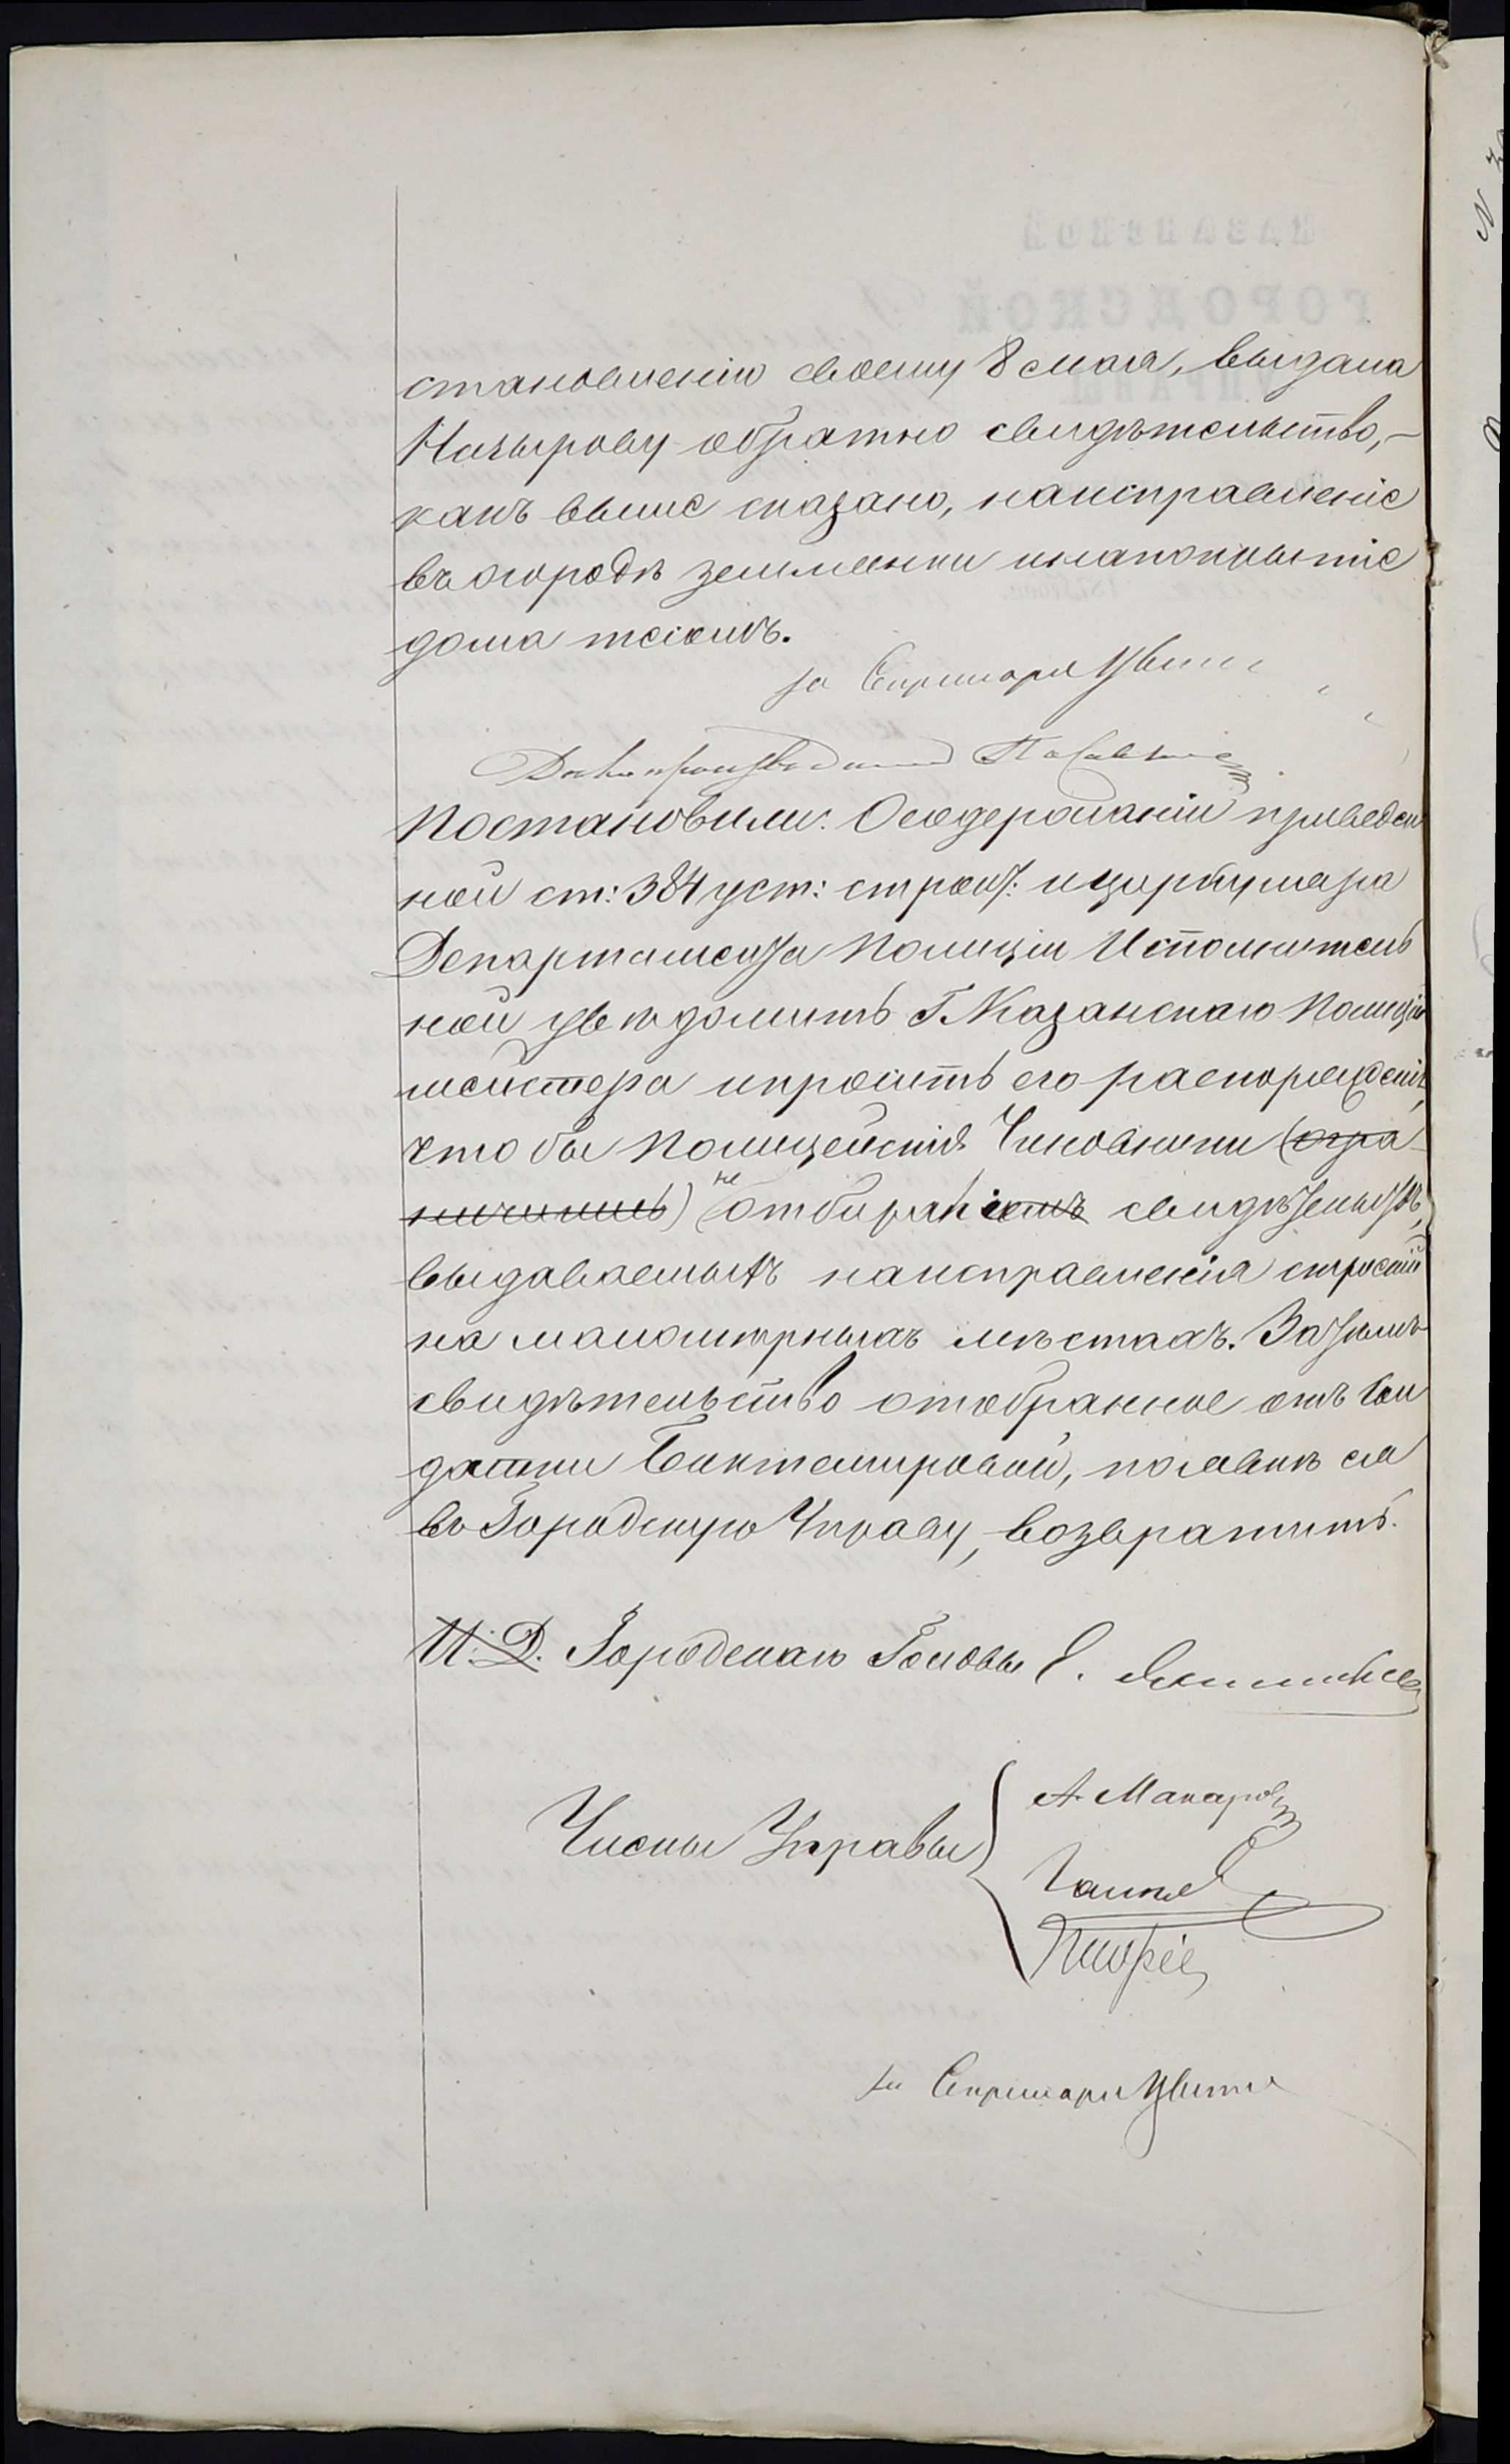 становленію своему 8 мая, выдала
Назырову обратно свидѣтельство,-
какъ выше сказано, наисправленіе
въ огородѣ землянки и на покрытіе
дома тесомъ.
за Секретаря
Дѣлопроизводитель
Постановили: О содержаніи приведен
ной ст: 384 уст: строит: и циркуляра
Департамента Полиціи Исполнитель
ной увѣдомить Г. Казанскаго Полицій
мейстера и просить его распоряженія,
что бы Полицейскіе Чиновники (огра-
ничились) не отбирали свидѣтельствъ,
выдаваемыхъ наисправленія строеній
на маломѣрныхъ мѣстахъ. Затѣмъ
свидѣтельство отобранное отъ Сол
датки Биктемировой, по явкѣ ея
въ Городскую Управу, возвратить.
И. Д. Городскаго Головы
Члены Управы
А. Макаровъ
за Секретаря
КАЗАНСКОЙ
ГОРОДСКОЙ